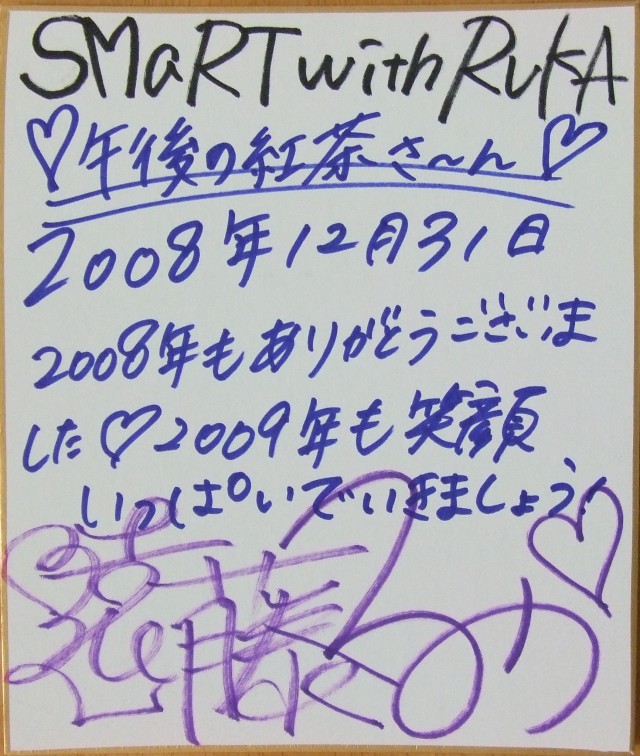 SMaRT with RuKA
♡午後の紅茶さ〜ん♡
2008年12月31日
2008年もありがとうございま
した♡2009年も笑顔
いっぱいでいきましょう!
遠藤るか♡